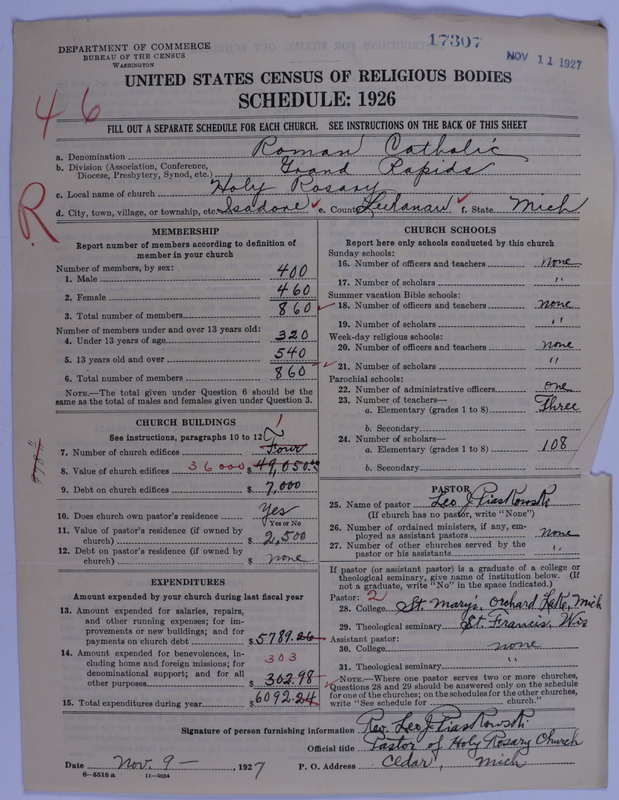 17307
NOV 11 1927
DEPARTMENT OF COMMERCE
BUREAU OF THE CENSUS
WASHINGTON
UNITED STATES CENSUS OF RELIGIOUS BODIES
SCHEDULE: 1926
46
FILL OUT A SEPARATE SCHEDULE FOR EACH CHURCH. SEE INSTRUCTIONS ON THE BACK OF THIS SHEET
R
a. Denomination Roman Catholic
b. Division (Association, Conference, Diocese, Presbytery, Synod, etc.) Grand Rapids
c. Local name of church Holy Rosary
d. City, town, village, or township, etc. Isadore e. County Leelanaw f. State Mich
MEMBERSHIP
Report number of members according to definition of
member in your church
Number of members, by sex:
1. Male 400
2. Female 460
3. Total number of members 860
Number of members under and over 13 years old:
4. Under 13 years of age 320
5. 13 years old and over 540
6. Total number of members 860
NOTE.—The total given under Question 6 should be the
same as the total of males and females given under Question 3.
CHURCH BUILDINGS
See instructions, paragraphs 10 to 12
1
7. Number of church edifices Four
8. Value of church edifices 36000 $ 49,050.00
9. Debt on church edifices $ 7,000
10. Does church own pastor's residence Yes
Yes or No
11. Value of pastor's residence (if owned by
church) $ 2,500
12. Debt on pastor's residence (if owned by
church) $ none
EXPENDITURES
Amount expended by your church during last fiscal year
13. Amount expended for salaries, repairs,
and other running expenses; for im-
provements or new buildings; and for
payments on church debt $ 5789.26
14. Amount expended for benevolences, in-
303
cluding home and foreign missions; for
denominational support; and for all
other purposes $ 302.98
15. Total expenditures during year $ 6092.24
CHURCH SCHOOLS
Report here only schools conducted by this church
Sunday schools:
16. Number of officers and teachers none
17. Number of scholars "
Summer vacation Bible schools:
18. Number of officers and teachers none
19. Number of scholars "
Week-day religious schools:
20. Number of officers and teachers none
21. Number of scholars "
Parochial schools:
22. Number of administrative officers one
23. Number of teachers—
a. Elementary (grades 1 to 8) Three
b. Secondary
24. Number of scholars—
a. Elementary (grades 1 to 8) 108
b. Secondary
PASTOR
25. Name of pastor Leo J Piaskowski
(If church has no pastor, write "None")
26. Number of ordained ministers, if any, em-
ployed as assistant pastors none
27. Number of other churches served by the
pastor or his assistants "
If pastor (or assistant pastor) is a graduate of a college or
theological seminary, give name of institution below. (If
not a graduate, write "No" in the space indicated.)
Pastor: 2
28. College St. Mary's, Orchard Lake, Mich
29. Theological seminary St. Francis, Wis
Assistant pastor:
30. College none
31. Theological seminary "
NOTE.—Where one pastor serves two or more churches,
Questions 28 and 29 should be answered only on the schedule
for one of the churches; on the schedules for the other churches,
write "See schedule for church."
Signature of person furnishing information Rev. Leo J Piaskowski
Official title Pastor of Holy Rosary Church
Date Nov. 9 - , 1927 P. O. Address Cedar, Mich
8—5518a 11—9034